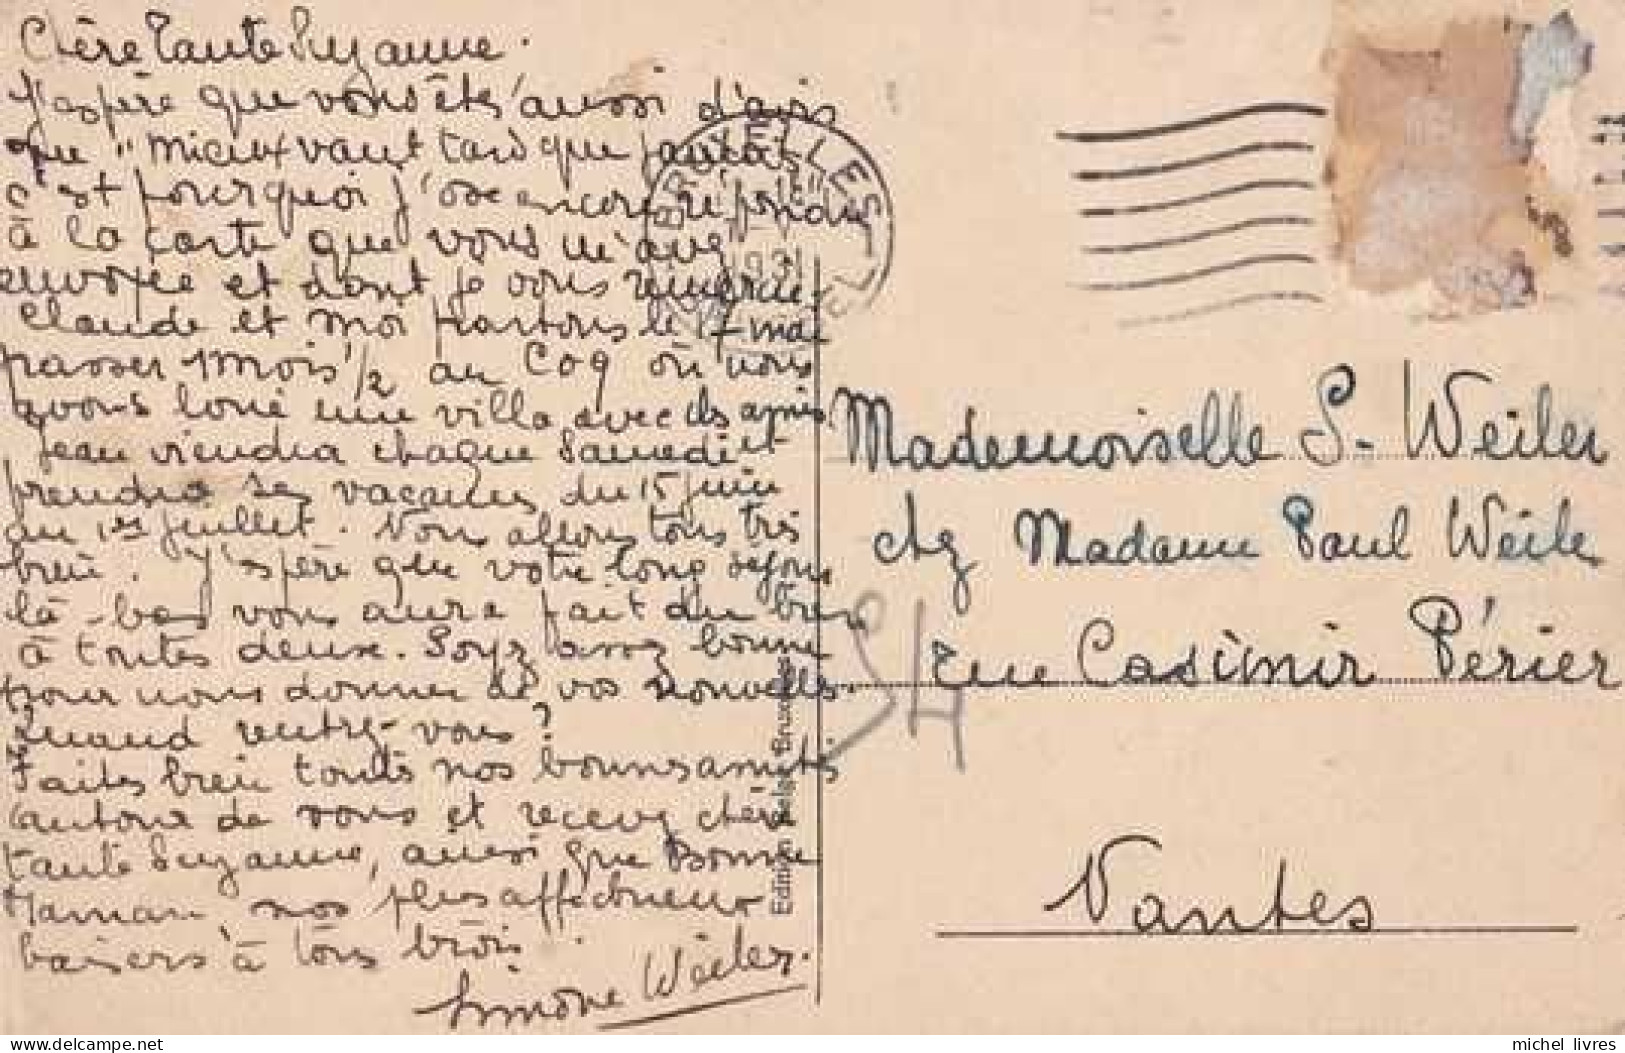 Chère Tante Suzanne.
J'espère que vous êtes aussi d'avis
que "mieux vaut tard que jamais"
c'est pourquoi j'ose encore répondre
à la carte que vous m'avez
envoyée et dont je vous remercie.
Claude et moi partons le 17 mai
passer 1 mois 1/2 au Coq où nous
avons loué une villa avec des amis
Jean viendra chaque Samedi et
prendra ses vacances du 15 juin
au 1er juillet. Nous allons tous très
bien. J'espère que votre long séjour
là-bas vous aura fait du bien
à toutes deux. Soyez assez bonne
pour nous donner de vos nouvelles.
Quand rentrez-vous?
Faites bien toutes nos bonnes amitiés
autour de vous et recevez chère
tante Suzanne, ainsi que Bonne
Maman nos plus affectueux
baisers à tous trois.
Simone Weiler.
BRUXELLES
1931
BRUSSEL
Edition Belge Bruxelles
Mademoiselle S. Weiler
chez Madame Paul Weiler
54 rue Casimir Périer
Nantes
delcampe.net
michel_livres